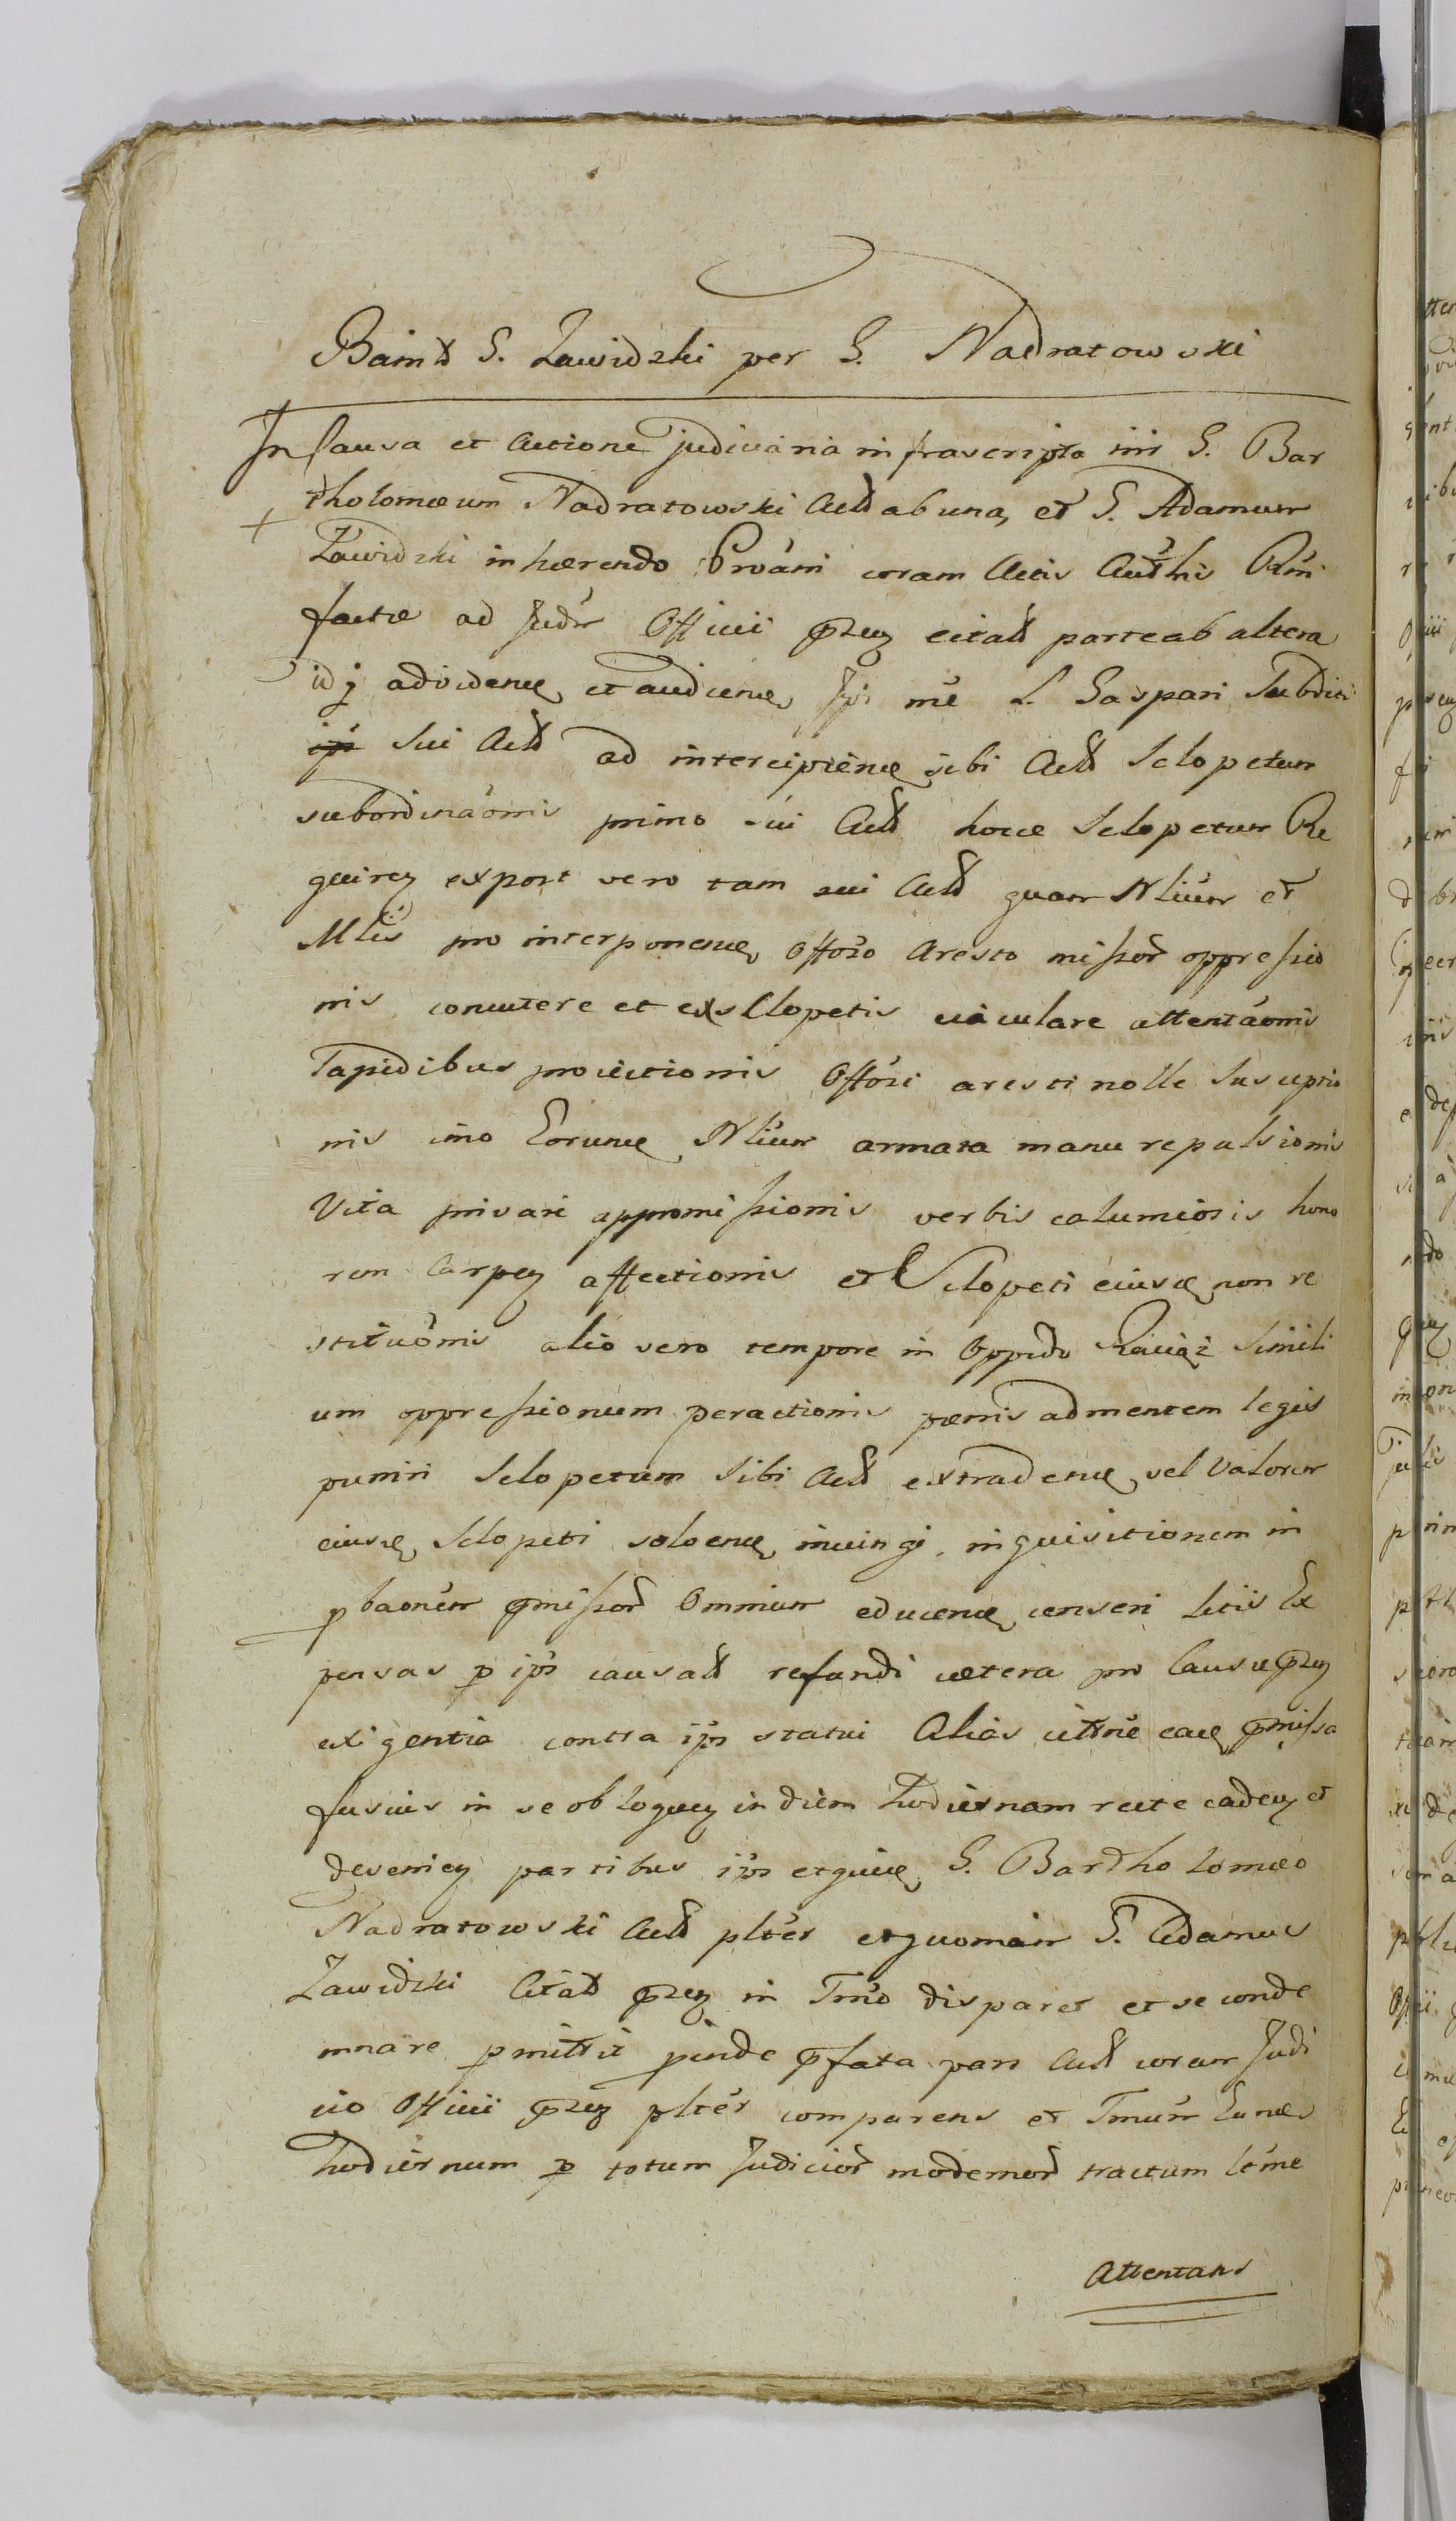 Banit S. Zawidzki per G. Nadratowski
In Causa et Actione judiciaria infrascripta inr G. Bar
tholomæum Nadratowski Act ab una, et G. Adamum
Zawidzki inhærendo coram Actis
factæ ad Judm Officii præn citat parte ab altera
idq ad videndu et audiendu L. Gaspari Subditi
sui Act ad intercipiendu sibi Act Sclopetum
subordinaonis primo sui Act hocce Sclopetum Re
quiren expost vero tam sui Act quam Nlium et
Mlis pro interponendu Offoso Aresto missor oppressio
nis concutere et ex Sclopetis eiaculare attentaonis
Lapidibus proiectionis Offosi aresti nolle Susceptio
nis imo Eorund Nlium armata manu repulsionis
Vita privari appromissionis verbis calumiosis hono
rem Carpen affectionis et Sclopeti eiusd non re
stituonis alio vero tempore in Oppido Raciąż Simili
um oppressionum peractionis pænis ad mentem legis
puniri Sclopetum Sibi Act extradendu vel Valorem
eiusd Sclopeti solvendu iniungi inquisitionem in
pbaonem præmissor Omnium educendu censeri Litis Ex
pensas p ips causat refundi cætera pro Causæ præn
exigentia contra ips statui Alias citne ead præmissa
fusius in se obloquen in diem hodiernam recte caden et
devenien partibus ips et quid G. Bartholomæo
Nadratowski Act plter et quoniam G. Adamus
Zawidzki Citat præn in Trmo disparet et se conde
mnare pmittit proinde præfata pars Act coram Judi
cio Officii præn plter comparens et Trmum Eund
hodiernum p totum Judicior modernor tractum Ltme
Attentans